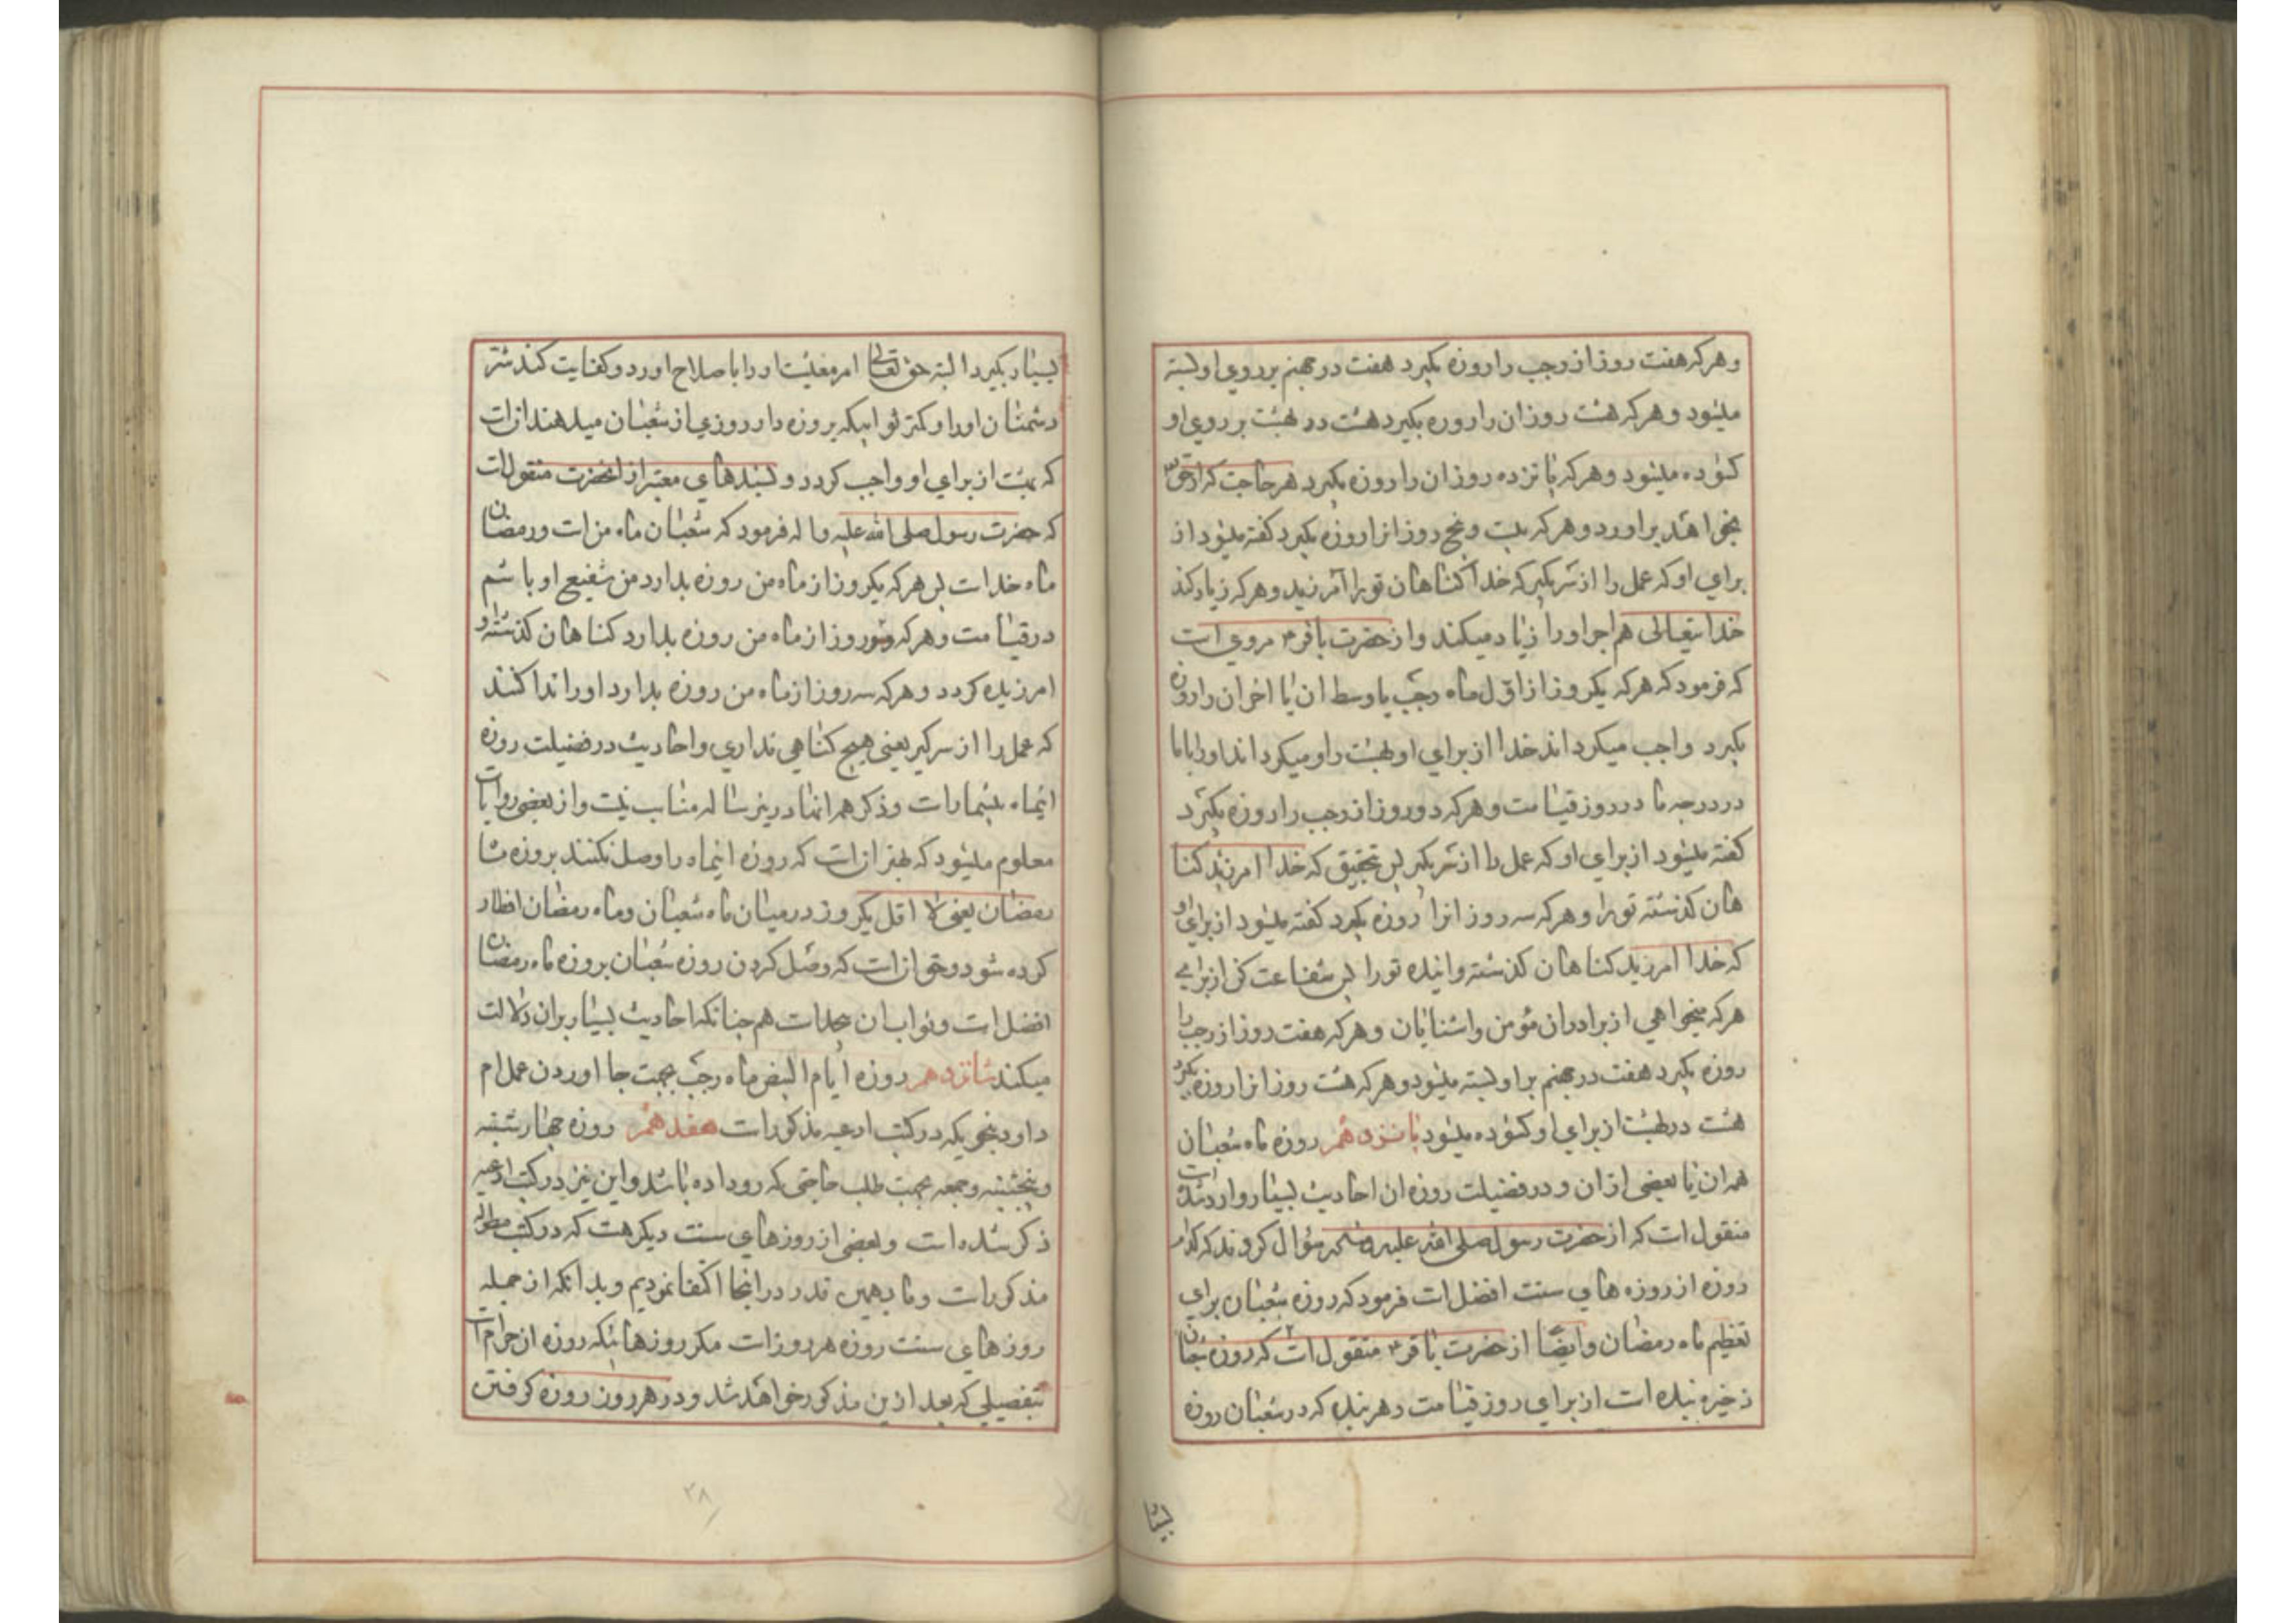 وهرکه هفت روز از رجب را روزه بکیرد هفت در جهنم بر روي او بسته
میشود وهرکه هشت روز ان را روزه بکیرد هشت در بهشت بر روي او
کشوده میشود وهرکه پانزده روز ان را روزه بکیرد هر حاجت که از حق
بخواهد براورد وهرکه بیست و پنج روز انرا روزه بکیرد کفته میشود از
براي او که عمل را از سر بکیر که خدا کناهان تو را آمرزید وهرکه زیاد کند
خدایتعالی هم اجر او را زیاد میکند و از حضرت باقر ۴ مروي است
که فرمود که هرکه یکروز از اوّل ماه رجب یا وسط ان یا اخر ان را روزه
بکیرد واجب میکرداند خدا از براي او بهشت را و میکرداند او را با ما
در درجه ما در روز قیامت وهرکه دو روز از رجب را روزه بکیرد
کفته میشود از براي او که عمل را از سر بکیر پس بتحقیق که خدا امرزید کنا
هان کذشته تو را وهرکه سه روز انرا روزه بکیرد کفته میشود از براي او
که خدا امرزید کناهان کذشته و اینده تو را پس شفاعت کن از براي
هرکه میخواهي از برادران مؤمن و اشنایان وهرکه هفت روز از رجب را
روزه بکیرد هفت در جهنم بر او بسته میشود وهرکه هشت روز انرا روزه بکیرد
هشت در بهشت از براي او کشوده میشود پانزدهم روزه ماه شعبان
همه ان یا بعضی از ان و در فضیلت روزه ان احادیث بسیار وارد شده است
منقول است که از حضرت رسول صلی الله علیه وسلم سؤال کردند که کدام
روزه از روزه هاي سنت افضل است فرمود که روزه شعبان براي
تعظیم ماه رمضان وایضًا از حضرت باقر ۴ منقول است که روزه شعبان
ذخیره بنده است از براي روز قیامت و هر بنده که در شعبان روزه
بسیا
بسیار بکیرد البته حق تعالی امر معیشت او را باصلاح اورد و کفایت کند شر
دشمنان او را و کمتر ثوابیکه بروزه دار روزي از شعبان میدهند ان است
که بهشت از براي او واجب کردد و بسندهاي معتبر از انحضرت منقول است
که حضرت رسول صلی الله علیه و اله فرمود که شعبان ماه من است و رمضان
ماه خدا است پس هرکه یکروز از ماه من روزه بدارد من شفیع او باشم
در قیامت وهرکه دو روز از ماه من روزه بدارد کناهان کذشته او
امرزیده کردد وهرکه سه روز از ماه من روزه بدارد او را ندا کنند
که عمل را از سر کیر یعنی هیچ کناهي نداري و احادیث در فضیلت روزه
اینماه بیشمار است و ذکر همه انها درینرساله مناسب نیست و از بعضی روایات
معلوم میشود که بهتر ان است که روزه اینماه را وصل نکنند بروزه ماه
رمضان یعنی لا اقل یکروز در میان ماه شعبان وماه رمضان افطار
کرده شود و حق ان است که وصل کردن روزه شعبان بروزه ماه رمضان
افضل است و ثواب ان بیحد است هم چنانکه احادیث بسیار بران دلالت
میکند شانزدهم روزه ایام البیض ماه رجب بجهت جا اوردن عمل ام
داود بنحویکه در کتب ادعیه مذکور است هفدهم روزه چهارشنبه
و پنجشنبه و جمعه بجهت طلب حاجتی که رو داده باشد و این نیز در کتب ادعیه
ذکر شده است و بعضی از روزهاي سنت دیکر هست که در کتب مطوله
مذکور است و ما بهمین قدر در اینجا اکتفا نمودیم و بدانکه از جمله
روزهاي سنت روزه هر روز است مکر روزهائیکه روزه ان حرام است
بتفصیلي که بعد ازین مذکور خواهد شد و در هر روز روزه کرفتن
۳۸